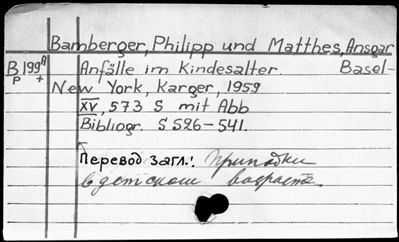 Bamberger, Philipp und Matthes, Ansgar
B 199A Anfälle im Kindesalter. Basel-
P + New York, Karger, 1959
XV, 573 S mit Abb
Bibliogr. S 526-541.
Перевод загл.: Припадки
в детском возрасте.